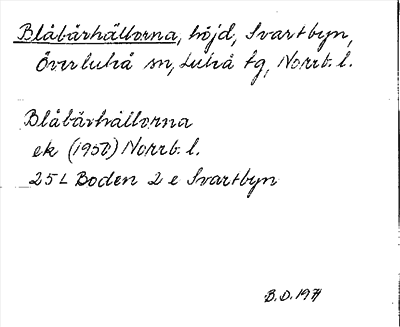 Blåbärhällorna, höjd, Svartbyn,
Överluleå sn, Luleå tg, Norrb. l.
Blåbärhällorna
ek (1950) Norrb. l.
25 L Boden 2 e Svartbyn
B.D. 1971